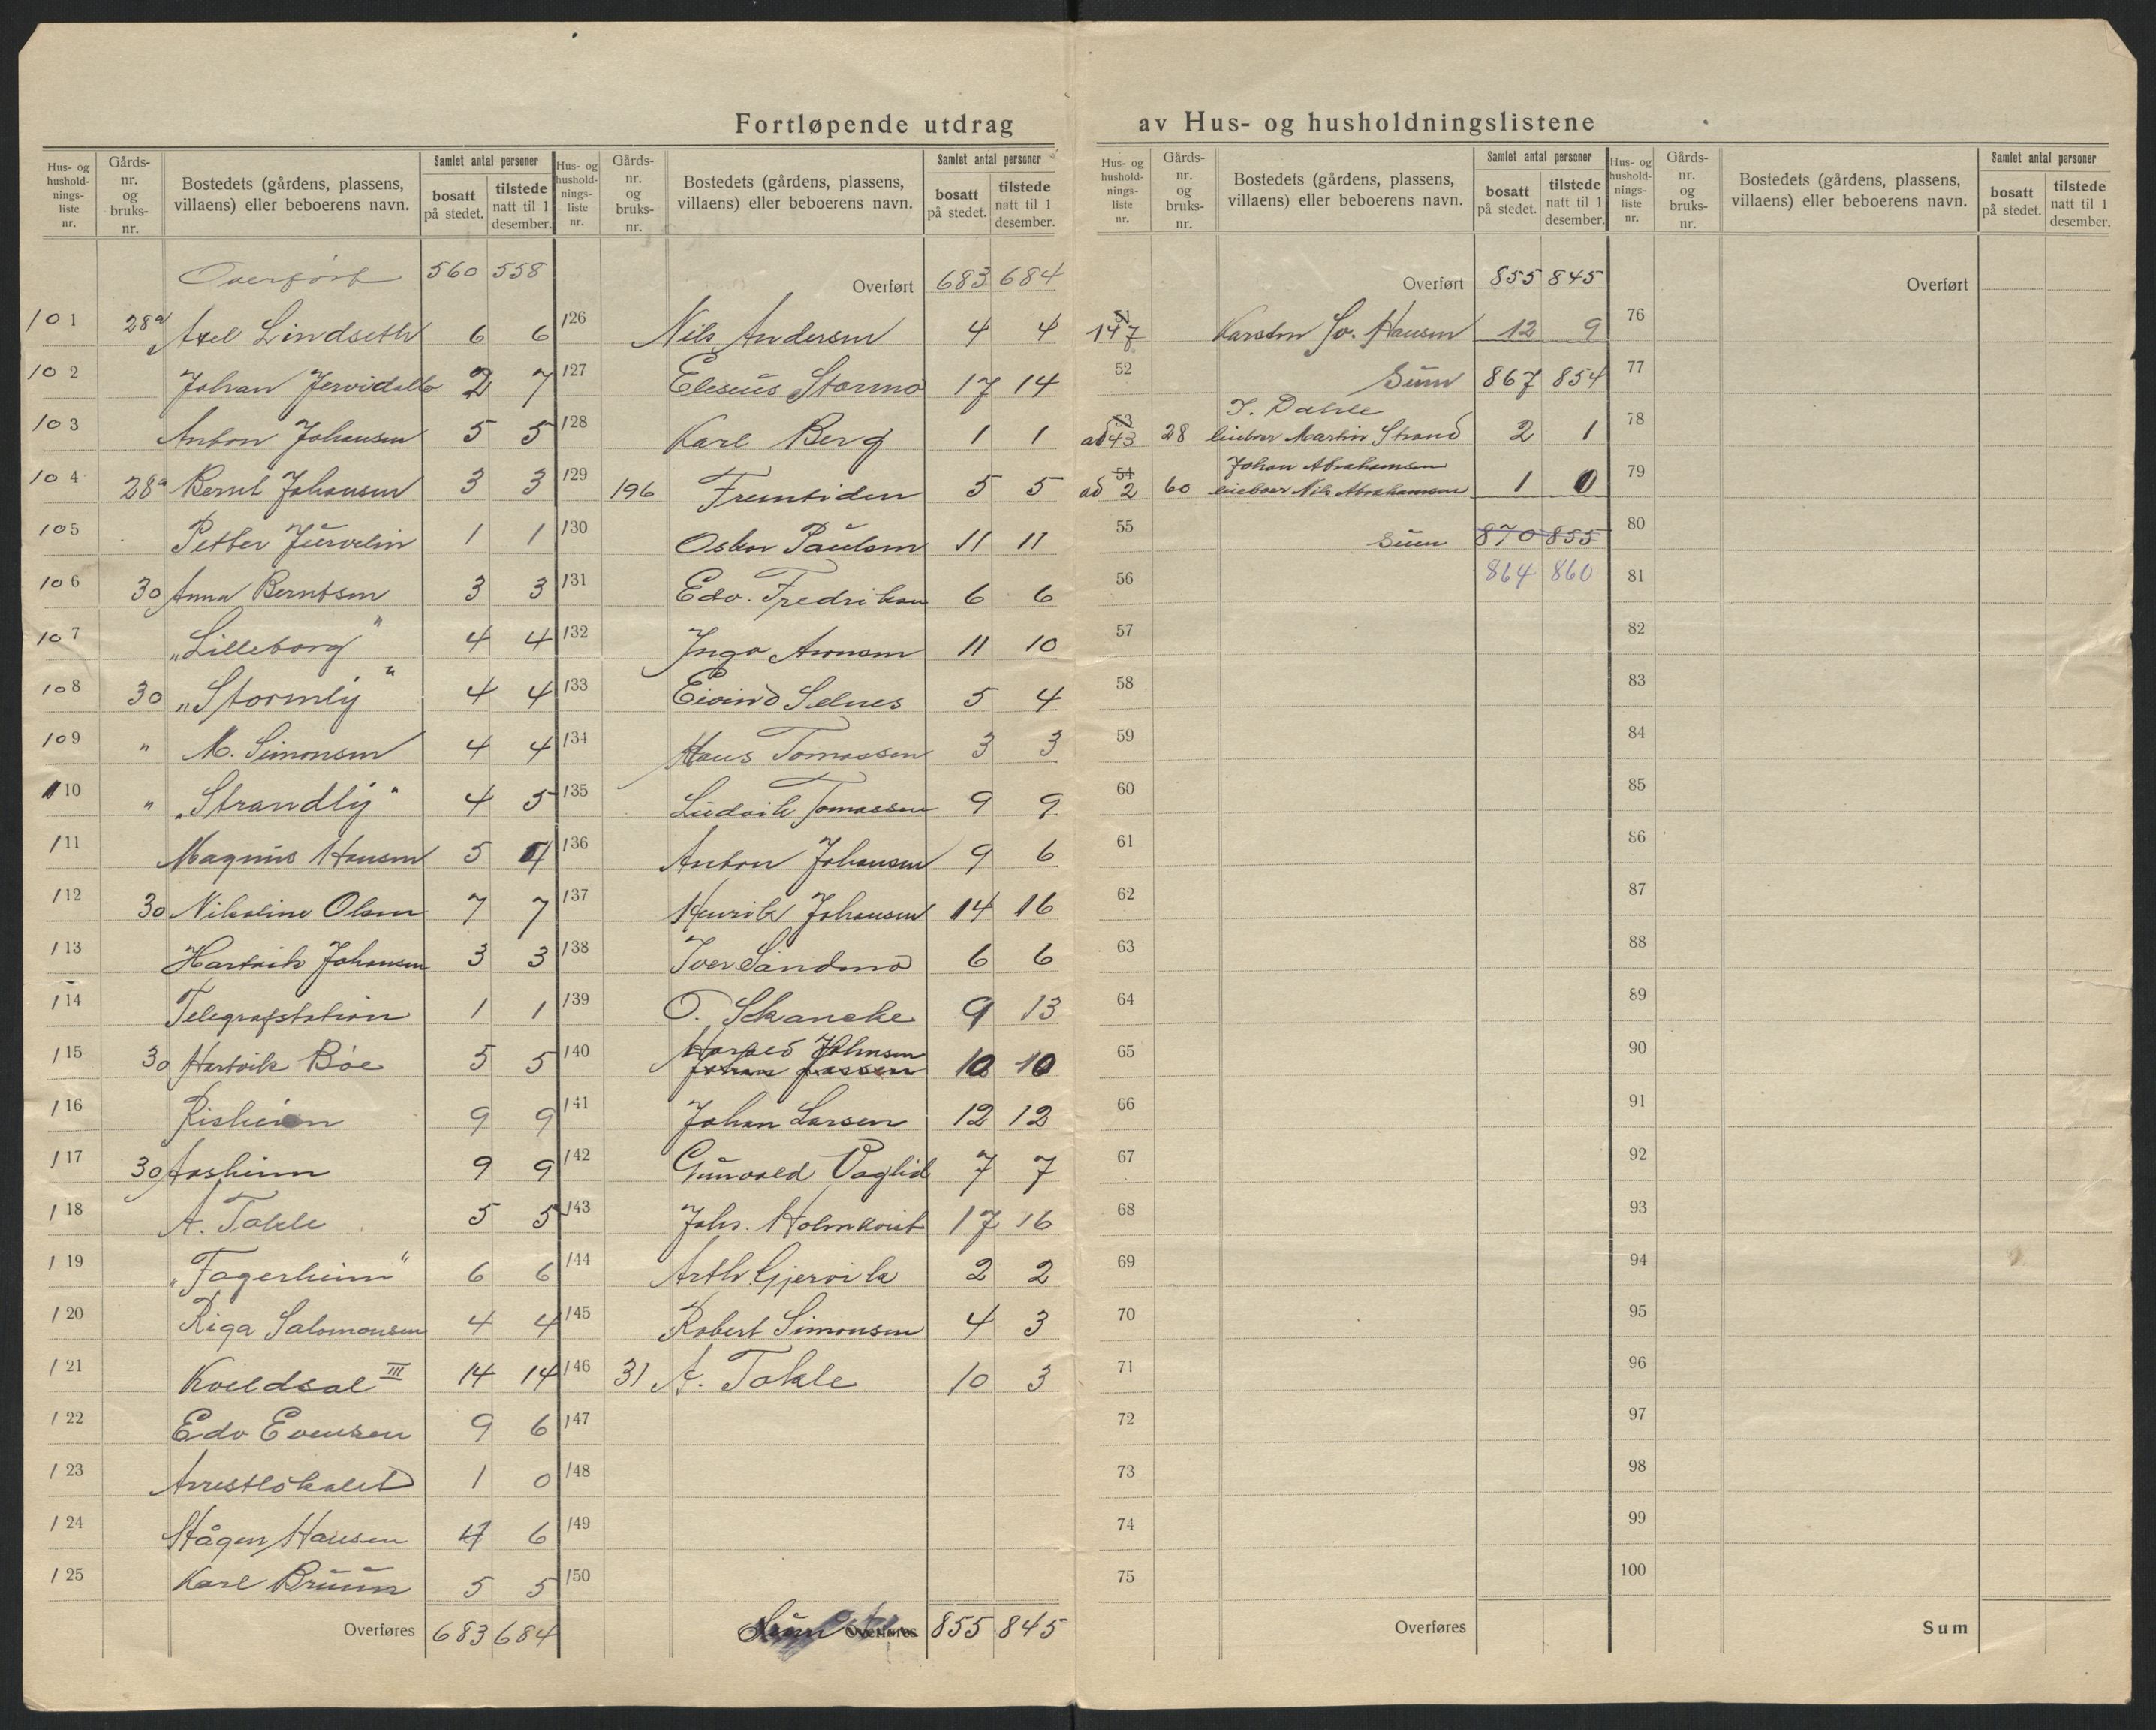 Fortløpende utdrag av Hus- og husholdningslistene
Hus- og hushold-nings-liste nr. Gårds-nr. og bruks-nr. Bostedets (gårdens, plassens, villaens) eller beboerens navn. Samlet antal personer bosatt på stedet. tilstede natt til 1 desember.
Overført 560 558
101 28a Axel Lindseth 6 6
102 Johan Jervidalb 2 7
103 Anton Johansen 5 5
104 28a Bernt Johansen 3 3
105 Petter Jürvelin 1 1
106 30 Anna Berntsen 3 3
107 "Lilleborg" 4 4
108 30 "Stormly" 4 4
109 " M. Simonsen 4 4
110 " "Strandly" 4 5
111 Magnus Hansen 5 4
112 30 Nikoline Olsen 7 7
113 Hartvik Johansen 3 3
114 Telegrafstation 1 1
115 30 Hartvik Bøe 5 5
116 9 9
117 30 Aasheim 9 9
118 A. Takle 5 5
119 "Fagerheim" 6 6
120 Riga Salomonsen 4 4
121 Kveldsol III 14 14
122 Edv Evensen 9 6
123 Arrestlokalet 1 0
124 Hågen Hansen 4 6
125 Karl Bruun 5 5
Overføres 683 684
Hus- og hushold-nings-liste nr. Gårds-nr. og bruks-nr. Bostedets (gårdens, plassens, villaens) eller beboerens navn. Samlet antal personer bosatt på stedet. tilstede natt til 1 desember.
Overført 683 684
126 Nils Andersen 4 4
127 Eleseus Stormo 17 14
128 Karl Berg 1 1
129 196 Fremtiden 5 5
130 Oskar Paulsen 11 11
131 Edv. Fredriksen 6 6
132 Inga Aronsen 11 10
133 Eivind Selnes 5 4
134 Hans Tomassen 3 3
135 Ludvik Tomassen 9 9
136 Anton Johansen 9 6
137 Henrik Johansen 14 16
138 Iver Sandmo 6 6
139 O. Skancke 9 13
140 Harald Johnsen 10 10
141 Johan Larsen 12 12
142 Gunvald Vaglid 7 7
143 Johs. Holmkvist 17 16
144 Arth. Gjervik 2 2
145 Robert Simonsen 4 3
146 31 A. Takle 10 3
147
148
149
150
Sum Overføres 855 845
Hus- og hushold-nings-liste nr. Gårds-nr. og bruks-nr. Bostedets (gårdens, plassens, villaens) eller beboerens navn. Samlet antal personer bosatt på stedet. tilstede natt til 1 desember.
Overført 855 845
51
147 Karsten Sv. Hansen 12 9
52 Sum 867 854
53 J. Dahle
ad 43 28 leieboer Martin Strand 2 1
54 Johan Abrahamsen
ad 2 60 leieboer Nils Abrahamsen 1 0
55 Sum 870 855
56 864 860
57
58
59
60
61
62
63
64
65
66
67
68
69
70
71
72
73
74
75
Overføres
Hus- og hushold-nings-liste nr. Gårds-nr. og bruks-nr. Bostedets (gårdens, plassens, villaens) eller beboerens navn. Samlet antal personer bosatt på stedet. tilstede natt til 1 desember.
Overført
76
77
78
79
80
81
82
83
84
85
86
87
88
89
90
91
92
93
94
95
96
97
98
99
100
Sum